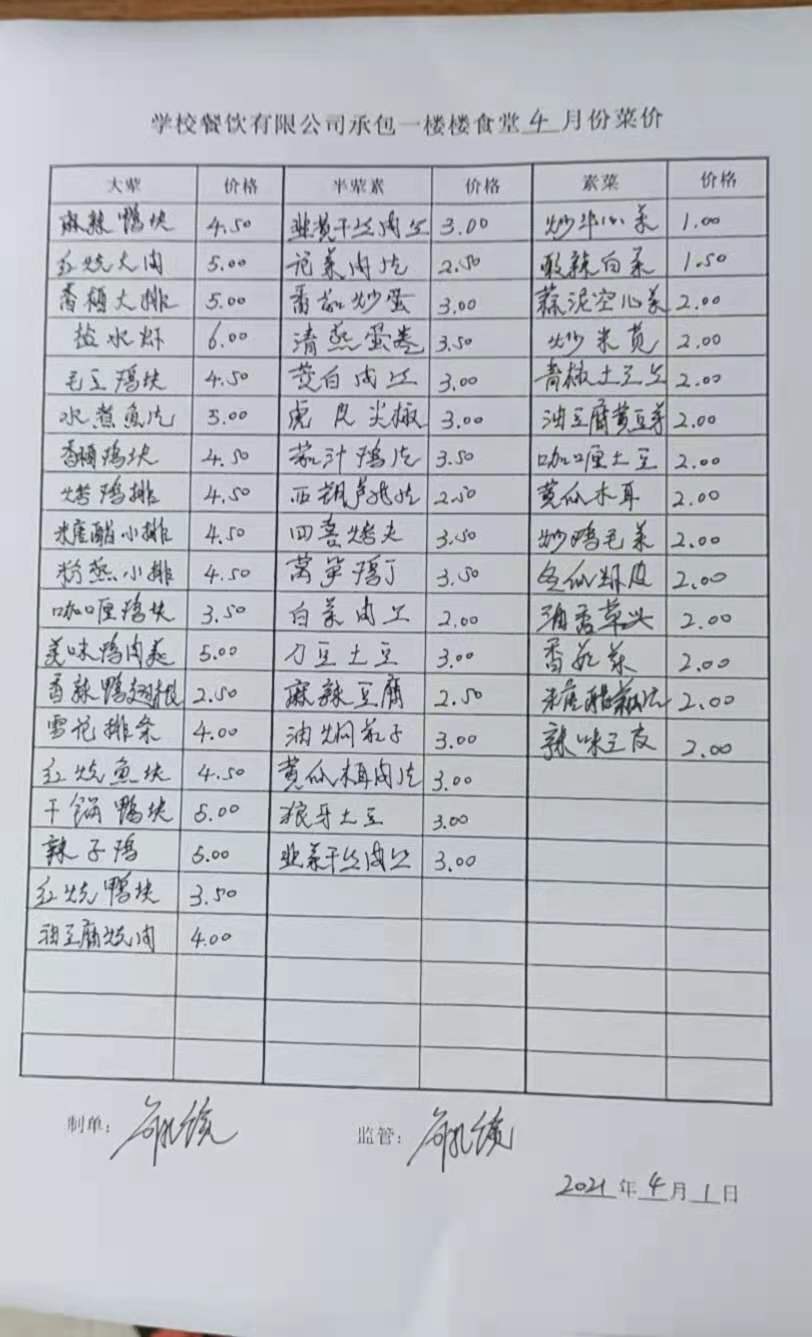 学校餐饮有限公司承包一楼楼食堂4月份菜价
大荤 价格 半荤素 价格 素菜 价格
麻辣鸭块 4.50 韭黄干丝肉丝 3.00 炒华心菜 1.00
红烧大肉 5.00 肉片 2.50 酸辣白菜 1.50
香梗大排 5.00 番茄炒蛋 3.00 蒜泥空心菜 2.00
盐水虾 6.00 清蒸蛋卷 3.50 炒米苋 2.00
毛豆鸡块 4.50 茭白肉丝 3.00 青椒土豆丝 2.00
水煮鱼片 5.00 虎皮尖椒 3.00 油豆腐黄豆芽 2.00
鸡块 4.50 茄汁鸡片 3.50 咖喱土豆 2.00
烤鸡排 4.50 西葫芦 2.50 黄瓜木耳 2.00
糖醋小排 4.50 四喜烤夫 3.50 炒鸡毛菜 2.00
粉蒸小排 4.50 莴笋鸡丁 3.50 2.00
咖喱鸡块 3.50 白菜肉丝 2.00 酒香草头 2.00
美味鸭肉 5.00 刀豆土豆 3.00 香菇菜 2.00
香辣鸭翅根 2.50 麻辣豆腐 2.50 2.00
雪花排条 4.00 油焖茄子 3.00 辣味三皮 2.00
红烧鱼块 4.50 黄瓜木耳肉片 3.00
干锅鸭块 5.00 狼牙土豆 3.00
辣子鸡 5.00 韭菜干丝肉丝 3.00
红烧鸭块 3.50
油豆腐烧肉 4.00
制单： 监管：
2021年4月1日